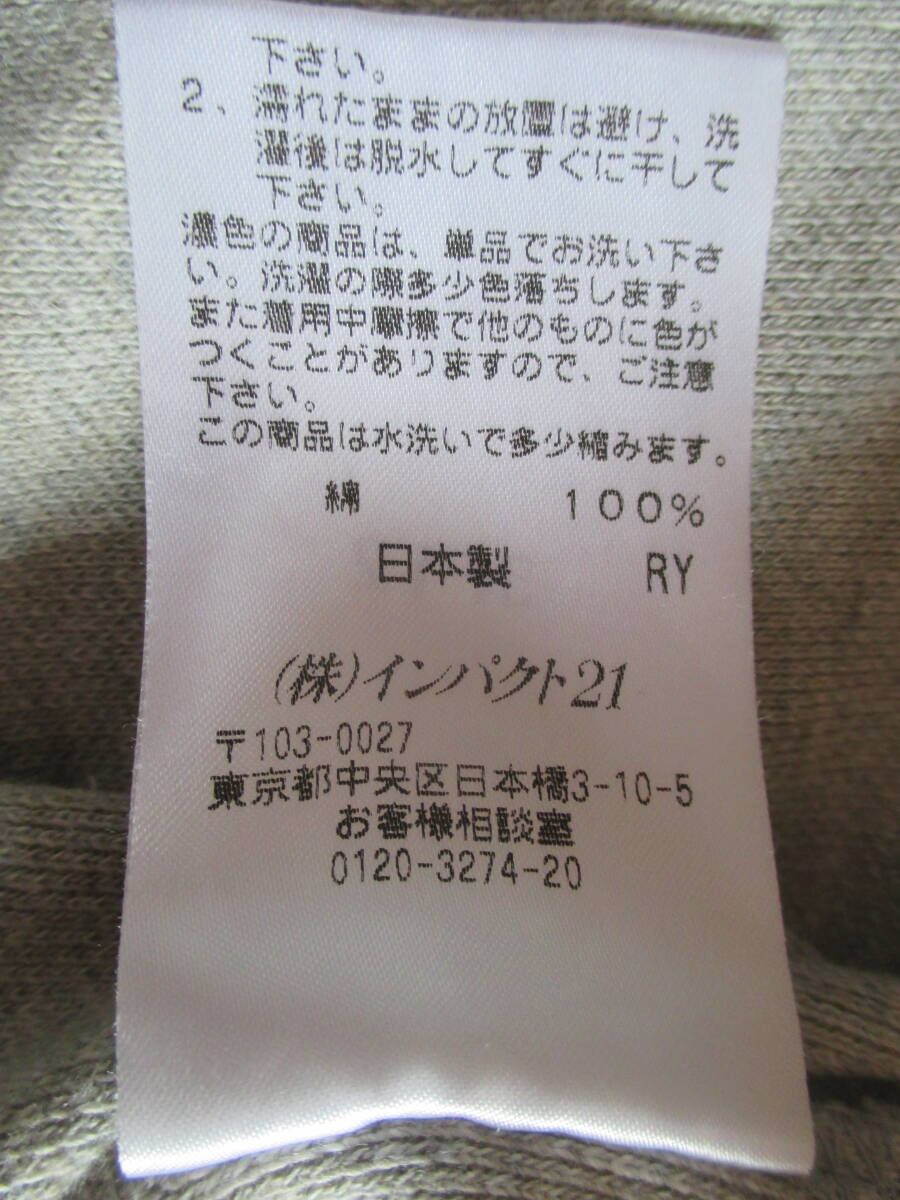 下さい。
2、濡れたままの放置は避け、洗
濯後は脱水してすぐに干して
下さい。
濃色の商品は、単品でお洗い下さ
い。洗濯の際多少色落ちします。
また着用中摩擦で他のものに色が
つくことがありますので、ご注意
下さい。
この商品は水洗いで多少縮みます。
綿 100%
日本製 RY
(株)インパクト21
〒103-0027
東京都中央区日本橋3-10-5
お客様相談室
0120-3274-20